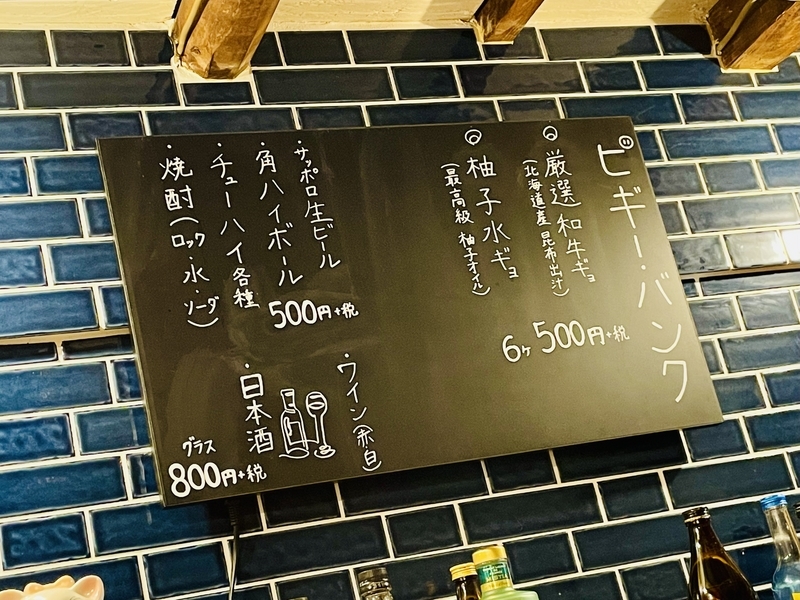 ピギー・バンク
◎厳選和牛ギョ
(北海道産 昆布出汁)
◎柚子水ギョ
(最高級 柚子オイル)
6ヶ500円+税
・サッポロ生ビール
・角ハイボール
・チューハイ各種
・焼酎(ロック・水・ソーダ)
500円+税
・ワイン(赤白)
・日本酒
グラス
800円+税